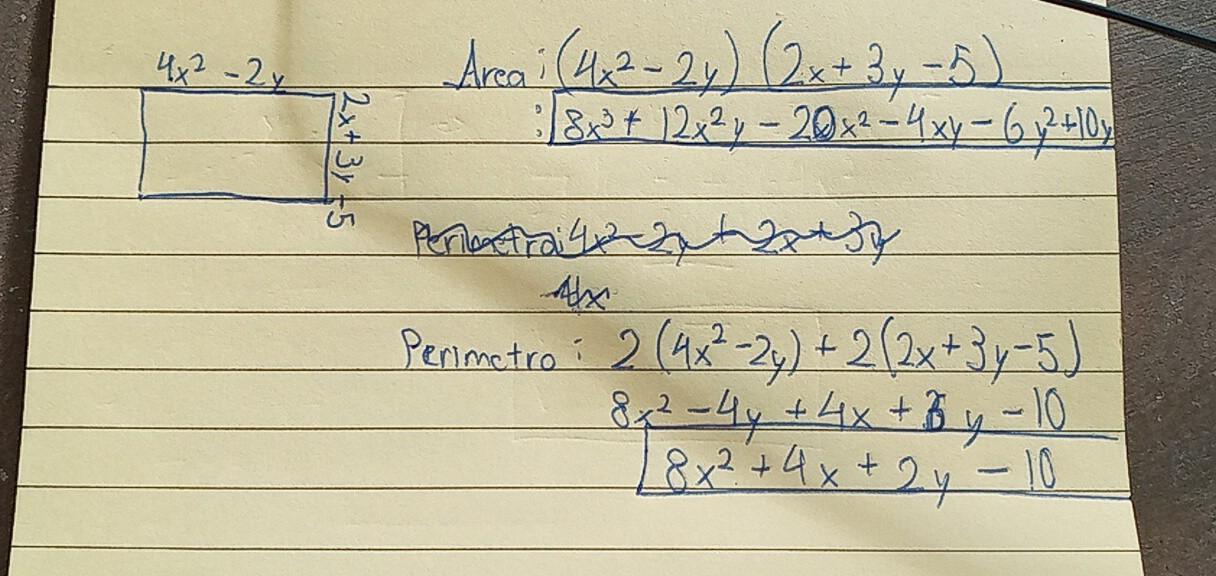 4x² - 2y
2x + 3y - 5
Area : (4x² - 2y) (2x + 3y - 5)
: 8x³ + 12x²y - 20x² - 4xy - 6y² + 10y
Perimetro: 4x² - 2y + 2x + 3y
4x
Perimetro : 2 (4x² - 2y) + 2 (2x + 3y - 5)
8x² - 4y + 4x + 6y - 10
8x² + 4x + 2y - 10